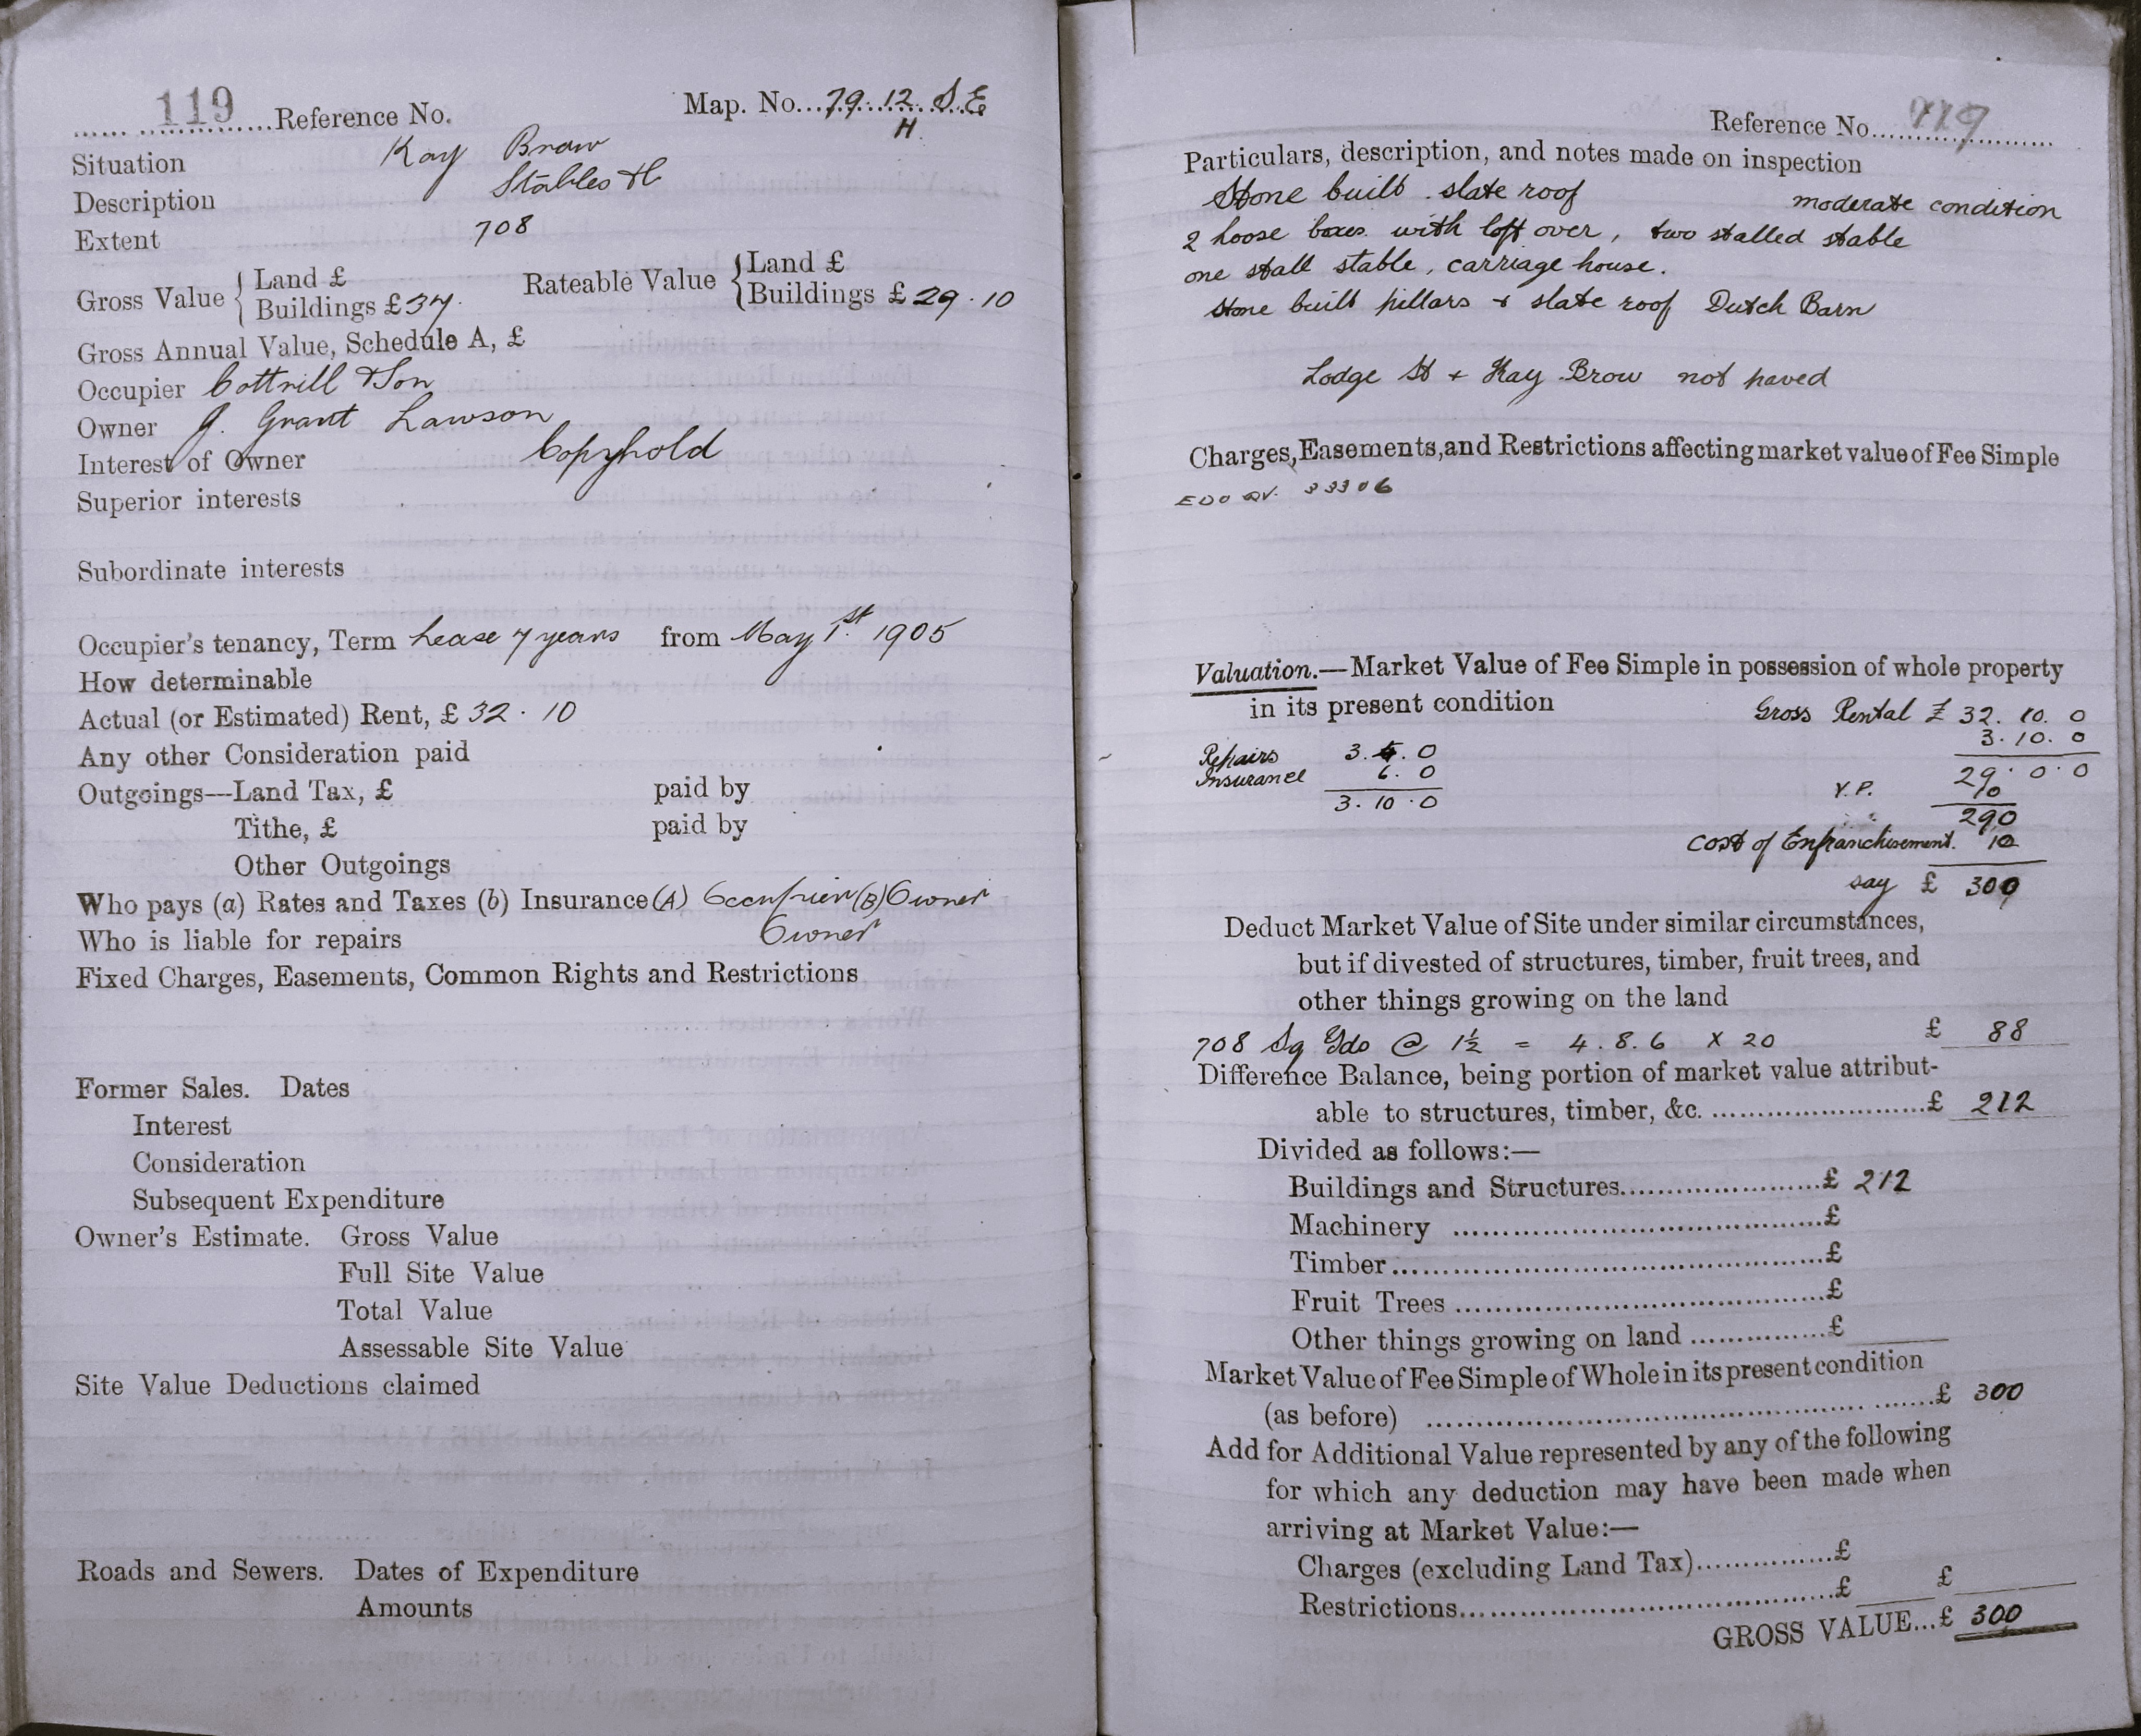 119 Reference No. Map. No. 79. 12. S.E
H.
Situation Kay Brow
Description Stables &c
Extent 708
Gross Value { Land £ Rateable Value { Land £
Buildings £ 37. Buildings £ 29 . 10
Gross Annual Value, Schedule A, £
Occupier Cottrill & Son
Owner J. Grant Lawson
Interest of Owner Copyhold
Superior interests
Subordinate interests
Occupier's tenancy, Term Lease 7 years from May 1st. 1905
How determinable
Actual (or Estimated) Rent, £ 32 . 10
Any other Consideration paid
Outgoings—Land Tax, £ paid by
Tithe, £ paid by
Other Outgoings
Who pays (a) Rates and Taxes (b) Insurance (A) Occupier (B) Owner
Who is liable for repairs Owner
Fixed Charges, Easements, Common Rights and Restrictions
Former Sales. Dates
Interest
Consideration
Subsequent Expenditure
Owner's Estimate. Gross Value
Full Site Value
Total Value
Assessable Site Value
Site Value Deductions claimed
Roads and Sewers. Dates of Expenditure
Amounts
Reference No. 119
Particulars, description, and notes made on inspection
Stone built . slate roof moderate condition
2 loose boxes with loft over, two stalled stable
one stall stable, carriage house.
Stone built pillars & slate roof Dutch Barn
Lodge St + Kay Brow not paved
Charges, Easements, and Restrictions affecting market value of Fee Simple
33306
Valuation.—Market Value of Fee Simple in possession of whole property
in its present condition Gross Rental £ 32. 10. 0
3. 10. 0
Repairs 3. 4. 0
Insurance 6. 0 29 . 0 . 0
3. 10 . 0 Y.P. 10
290
Cost of Enfranchisement. 10
say £ 300
Deduct Market Value of Site under similar circumstances,
but if divested of structures, timber, fruit trees, and
other things growing on the land
708 Sq Yds @ 1½ = 4. 8. 6 X 20 £ 88
Difference Balance, being portion of market value attribut-
able to structures, timber, &c. £ 212
Divided as follows:—
Buildings and Structures £ 212
Machinery £
Timber £
Fruit Trees £
Other things growing on land £
Market Value of Fee Simple of Whole in its present condition
(as before) £ 300
Add for Additional Value represented by any of the following
for which any deduction may have been made when
arriving at Market Value:—
Charges (excluding Land Tax) £
Restrictions £ £
GROSS VALUE...£ 300